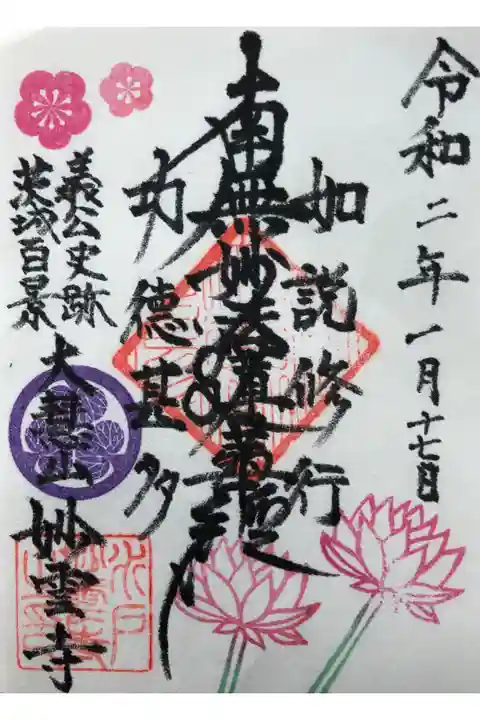 令和二年一月十七日
如説修行
南無妙法蓮華経
功徳甚多
義公史跡
茨城百景
大慧山 妙雲寺
水戸